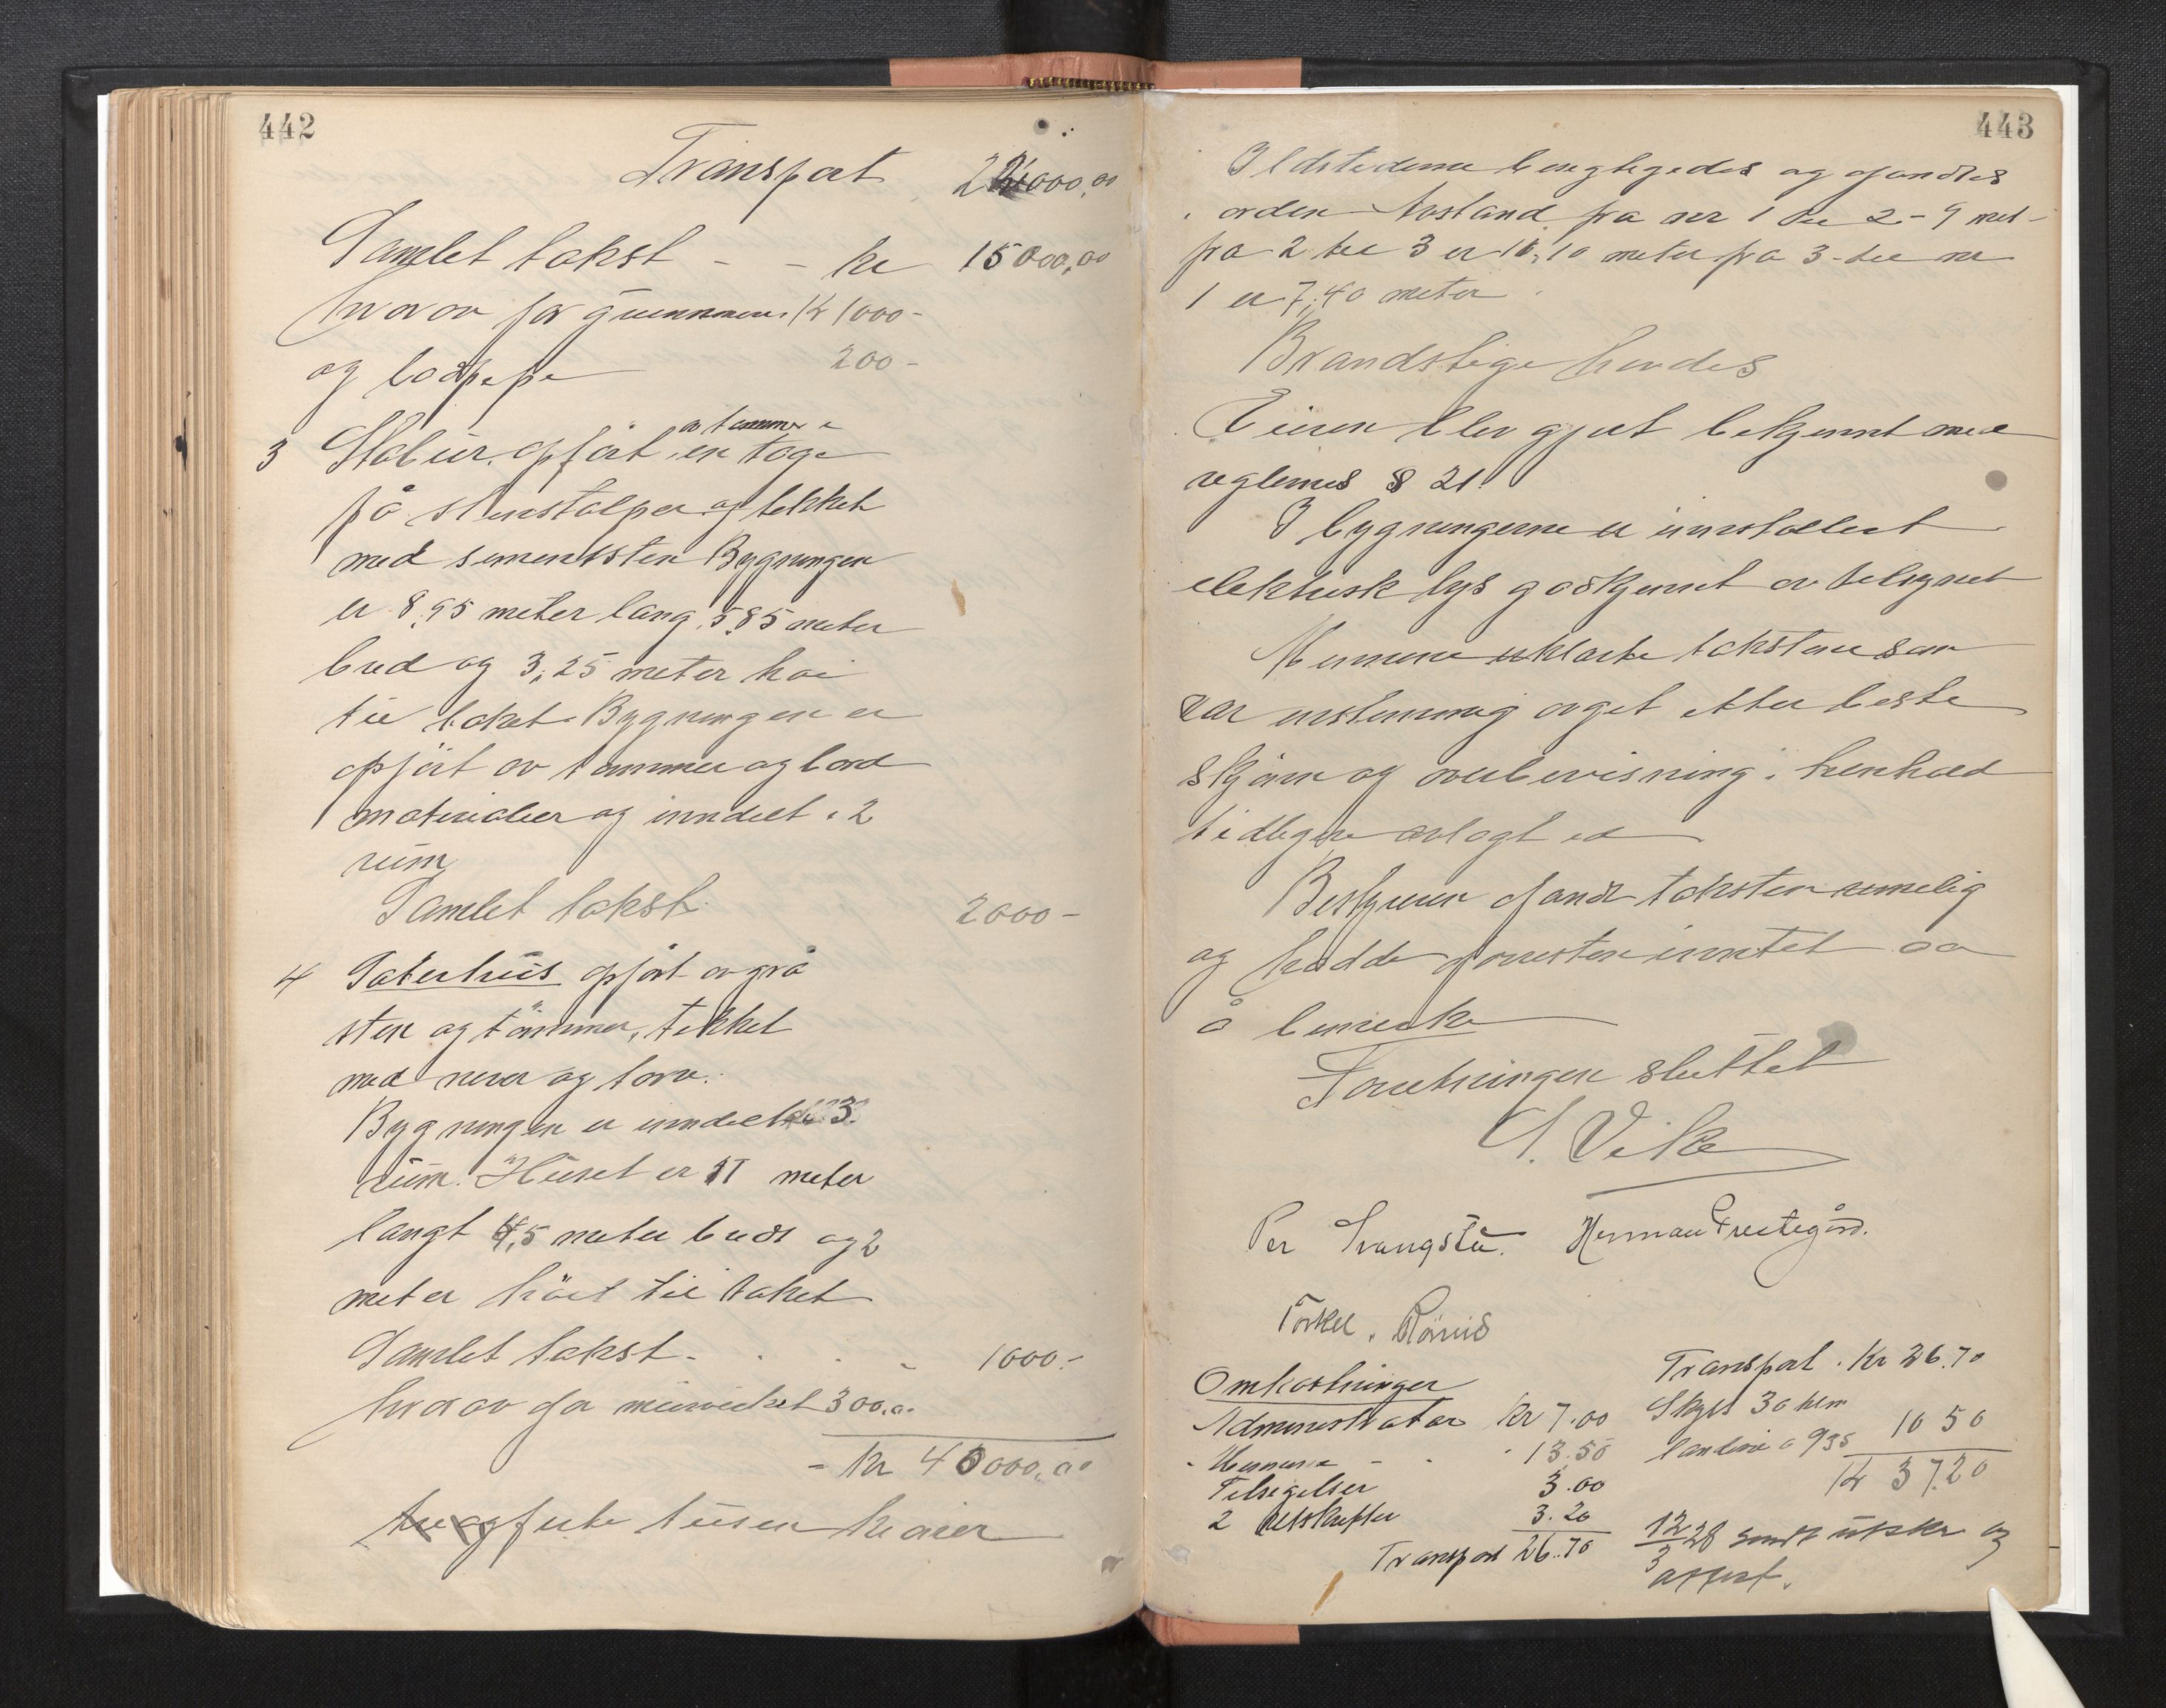 442
Transport 22000,00
Samlet takst - - kr 15000,00
hvorav for grunnmur kr 1000-
og lodpipe 200-
av tømmer i
3 Stabur, opført en tage
på stenstolper og tekket
med sementsten Bygningen
er 8,95 meter lang, 5,85 meter
bred og 3,25 meter høi
til taket. Bygningen er
opført av tømmer og bord
materialier og inndelt i 2
rum
Samlet takst 2000-
4 Taterhus opført av grå
sten og tømmer, tekket
med never og torv.
Bygningen er inndelt i 3
rum. Huset er 11 meter
langt 4,5 meter bredt og 2
meter høit til taket
Samlet takst - . . - 1000.-
hvorav for murverket 300.0.
- Kr 40000,00
førti tusen kroner
443
Ildstederne besigtigedes og fandtes
i orden Avstand fra nr 1 til 2 - 9 met-
fra 2 til 3 er 10,10 meter fra 3 til nr
1 er 7,40 meter.
Brandstige havdes
Eieren blev gjort bekjennt med
reglernes § 21.
I bygningerne er innstallert
elektrisk lys godkjennt av tilsynet
Mennene erklærte taksten som
var enstemmig avget etter beste
skjønn og overbevisning i henhold
tidligere avlagt ed
Bestyreren fandt taksten rimelig
og hadde forresten inntet
å bemerke
Forretningen sluttet
S. Vike
Per Herman Prestegård.
Torkel
Omkostninger
Administrator Kr 7.00
- Mennene - - 13.50
Tilsigelser 3.00
2 utskrifter 3.20
Transport 26.70
Transport . Kr 26.70
Skyss 30 klm
landvei a 0,35 10 50
Kr 37.20
12/3 28 sendt utskr og
attest.